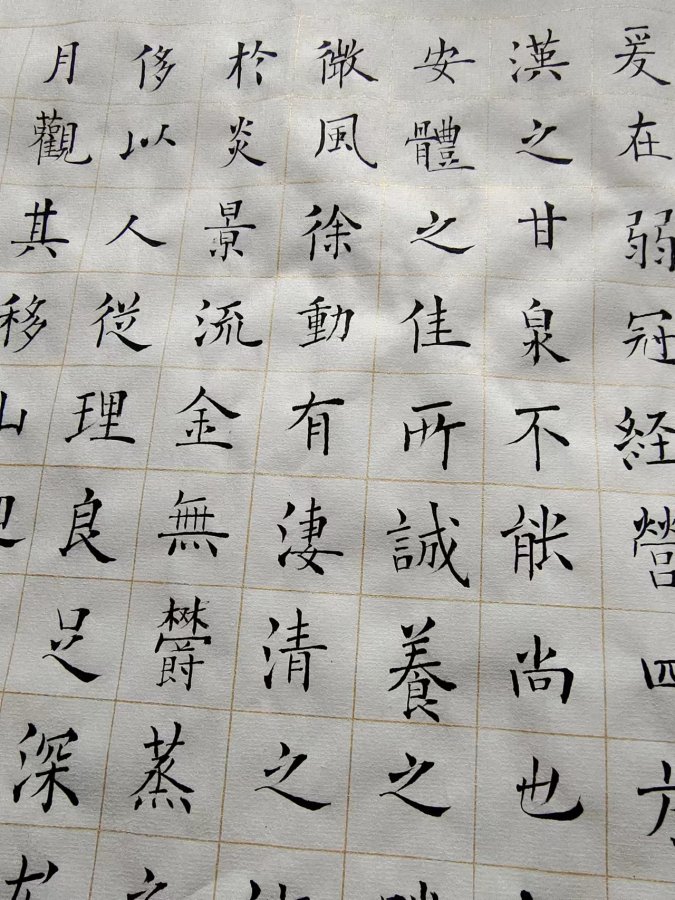 爰在弱冠経營四方
漢之甘泉不能尚也
安體之佳所誠養之勝
微風徐動有淒清之
於炎景流金無鬱蒸之
侈以人從理良足深尤
月觀其移山